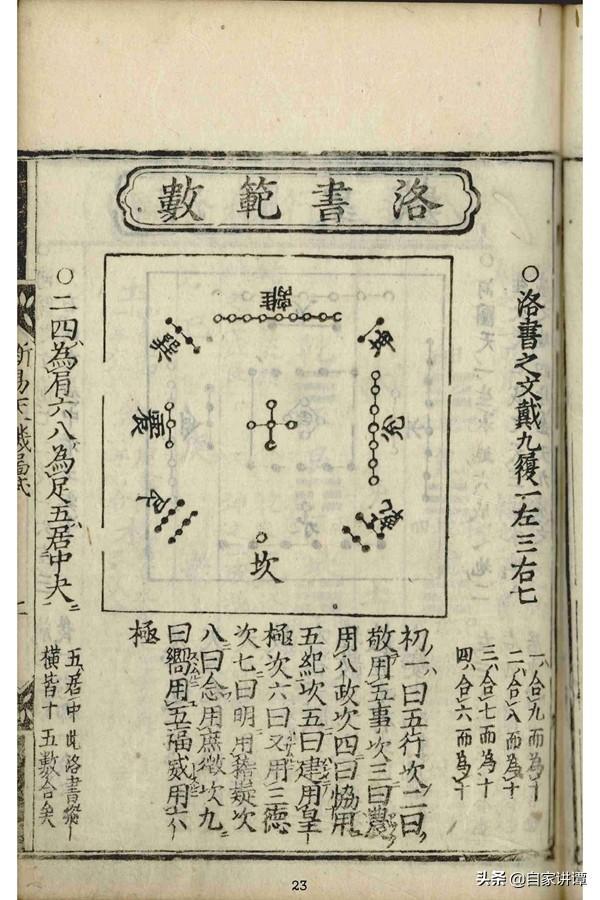 洛書範數
〇洛書之文戴九履一左三右七
一合九而為十
二合八而為十
三合七而為十
四合六而為十
離
坤
兌
乾
坎
艮
震
巽
初一曰五行次二曰
敬用五事次三曰農
用八政次四曰協用
五紀次五曰建用皇
極次六曰又用三德
次七曰明用稽疑次
八曰念用庶徵次九
曰嚮用五福威用六
極
〇二四為肩六八為足五居中央
五居中此洛書縱
橫皆十五數合矣
易天機
23
头条 @自家讲谭